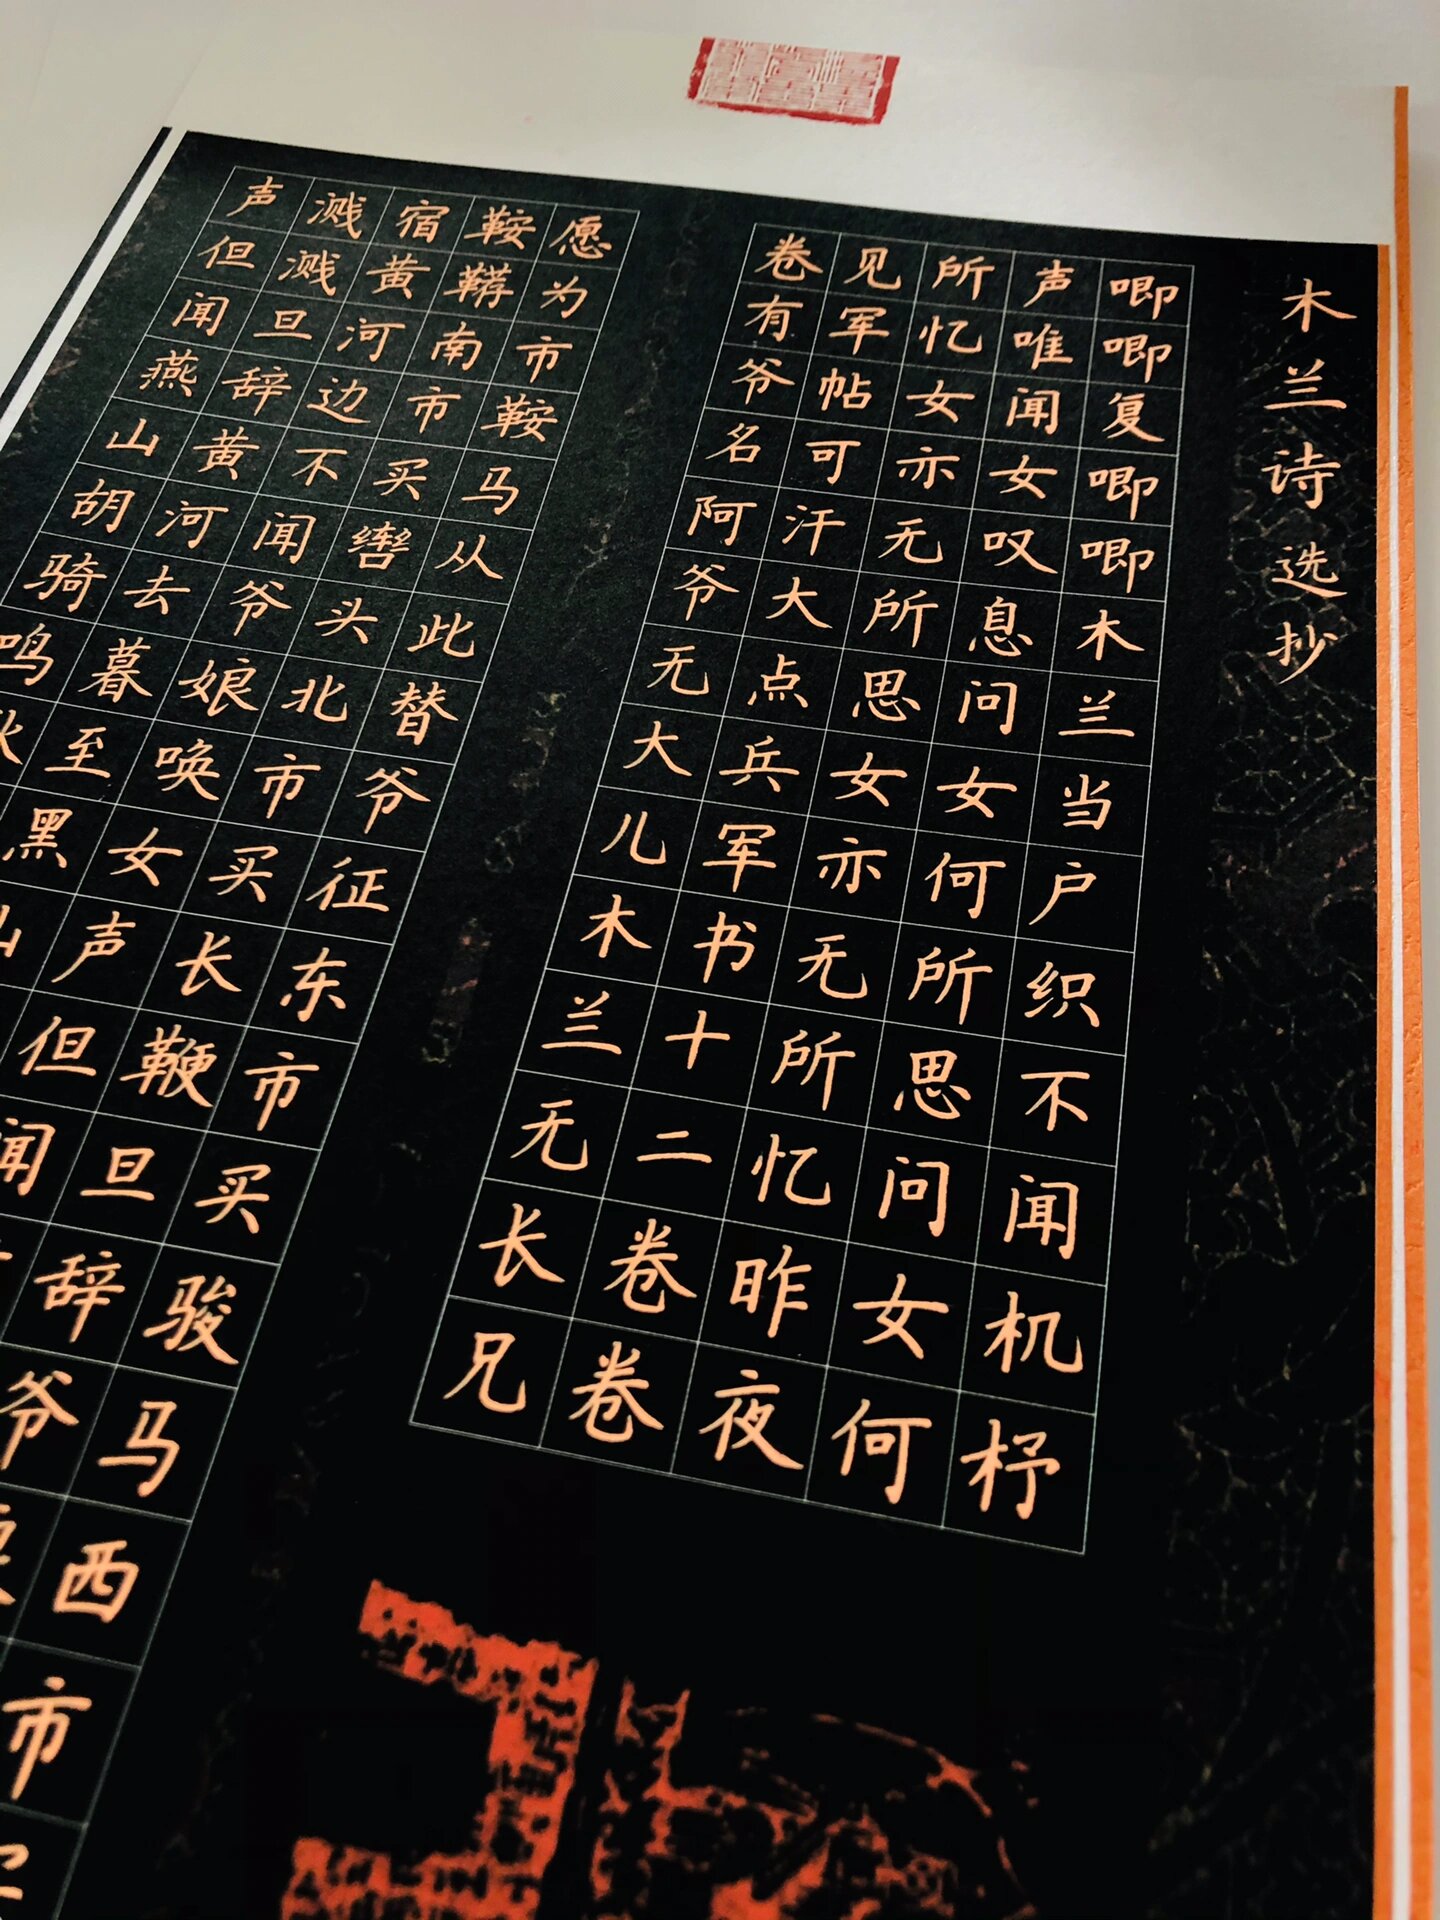 木兰诗选抄
唧唧复唧唧木兰当户织不闻机杼
声唯闻女叹息问女何所思问女何
所忆女亦无所思女亦无所忆昨夜
见军帖可汗大点兵军书十二卷卷
卷有爷名阿爷无大儿木兰无长兄
愿为市鞍马从此替爷征东市买骏马西市
鞍鞯南市买辔头北市买长鞭旦辞爷
宿黄河边不闻爷娘唤女声但闻
溅溅旦辞黄河去暮至黑山
声但闻燕山胡骑鸣啾